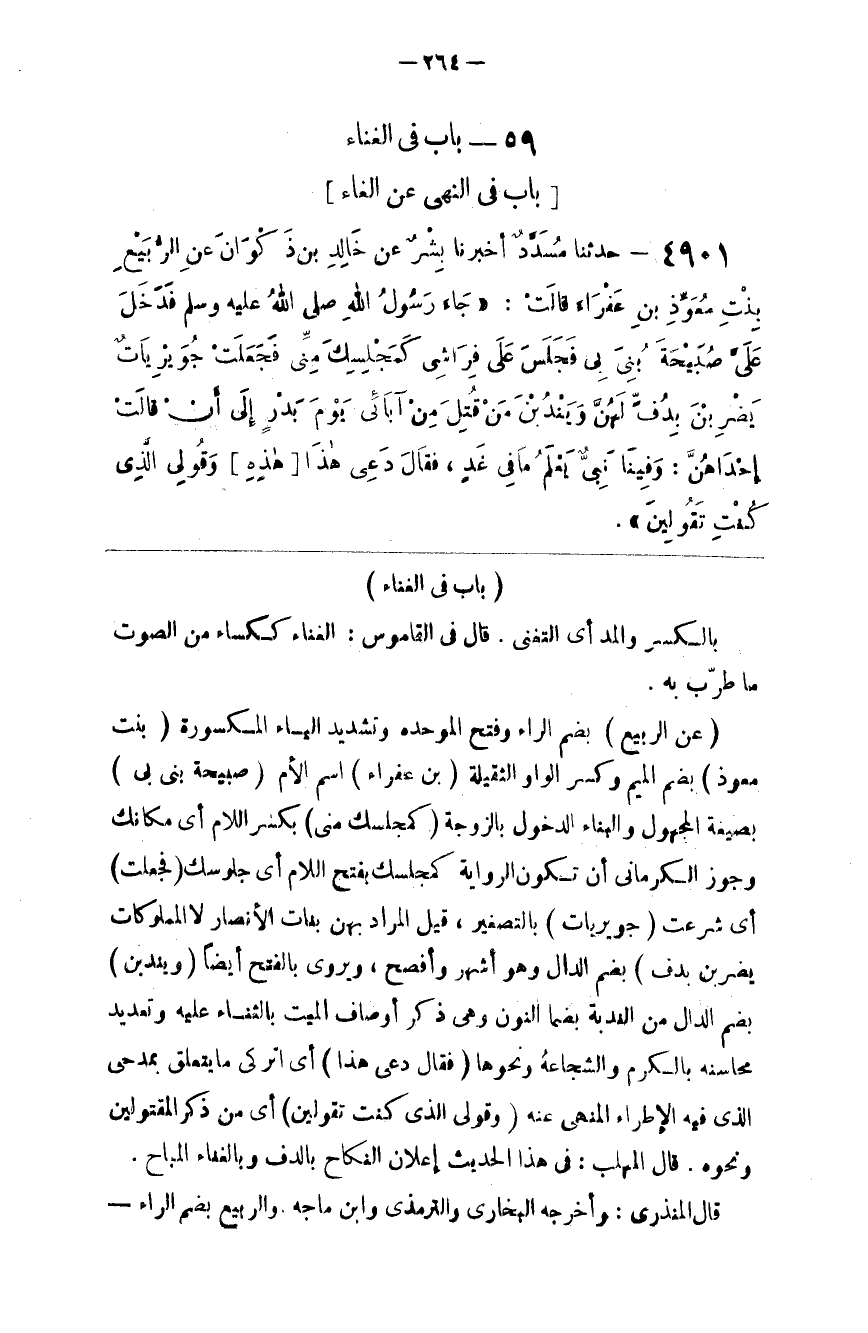 — ٢٦٤ —
٥٩ — باب فى الغناء
[ باب فى النهى عن الغناء ]
٤٩٠١ — حدثنا مُسَدَّدٌ أخبرنا بِشْرٌ عن خَالِدِ بن ذَكْوَانَ عن الرُّبَيِّعِ
بِنْتِ مُعَوِّذِ بنِ عَفْرَاءَ قالَتْ : « جَاءَ رَسُولُ اللهِ صلى اللهُ عليه وسلم فَدَخَلَ
عَلَىَّ صَبِيحَةَ بُنِىَ بِى فَجَلَسَ عَلَى فِرَاشِى كَمَجْلِسِكَ مِنِّى فَجَعَلَتْ جُوَيْرِيَاتٌ
يَضْرِبْنَ بِدُفٍّ لَهُنَّ وَيَنْدُبْنَ مَنْ قُتِلَ مِنْ آبَائِى يَوْمَ بَدْرٍ إِلَى أَنْ قالَتْ
إِحْدَاهُنَّ : وَفِينَا نَبِىٌّ يَعْلَمُ مَافِى غَدٍ ، فقالَ دَعِى هٰذَا [ هٰذِهِ ] وَقُولِى الَّذِى
كُنْتِ تَقُولِينَ » .
( باب فى الغناء )
بالكسر والمد أى التغنى . قال فى القاموس : الغناء ككساء من الصوت
ما طرّب به .
( عن الربيع ) بضم الراء وفتح الموحده وتشديد الياء المكسورة ( بنت
معوذ ) بضم الميم وكسر الواو الثقيلة ( بن عفراء ) اسم الأم ( صبيحة بنى بى )
بصيغة المجهول والبناء الدخول بالزوجة ( كمجلسك منى ) بكسر اللام أى مكانك
وجوز الكرمانى أن تكون الرواية كمجلسك بفتح اللام أى جلوسك ( فجعلت )
أى شرعت ( جويريات ) بالتصغير ، قيل المراد بهن بنات الأنصار لا المملوكات
يضربن بدف ) بضم الدال وهو أشهر وأفصح ، ويروى بالفتح أيضاً ( ويندبن )
بضم الدال من الندبة بضما النون وهى ذكر أوصاف الميت بالثناء عليه وتعديد
محاسنه بالكرم والشجاعة ونحوها ( فقال دعى هذا ) أى اتركى ما يتعلق بمدحى
الذى فيه الإطراء المنهى عنه ( وقولى الذى كنت تقولين ) أى من ذكر المقتولين
ونحوه . قال المهلب : فى هذا الحديث إعلان النكاح بالدف وبالغناء المباح .
قال المنذرى : وأخرجه البخارى والترمذى وابن ماجه . والربيع بضم الراء —